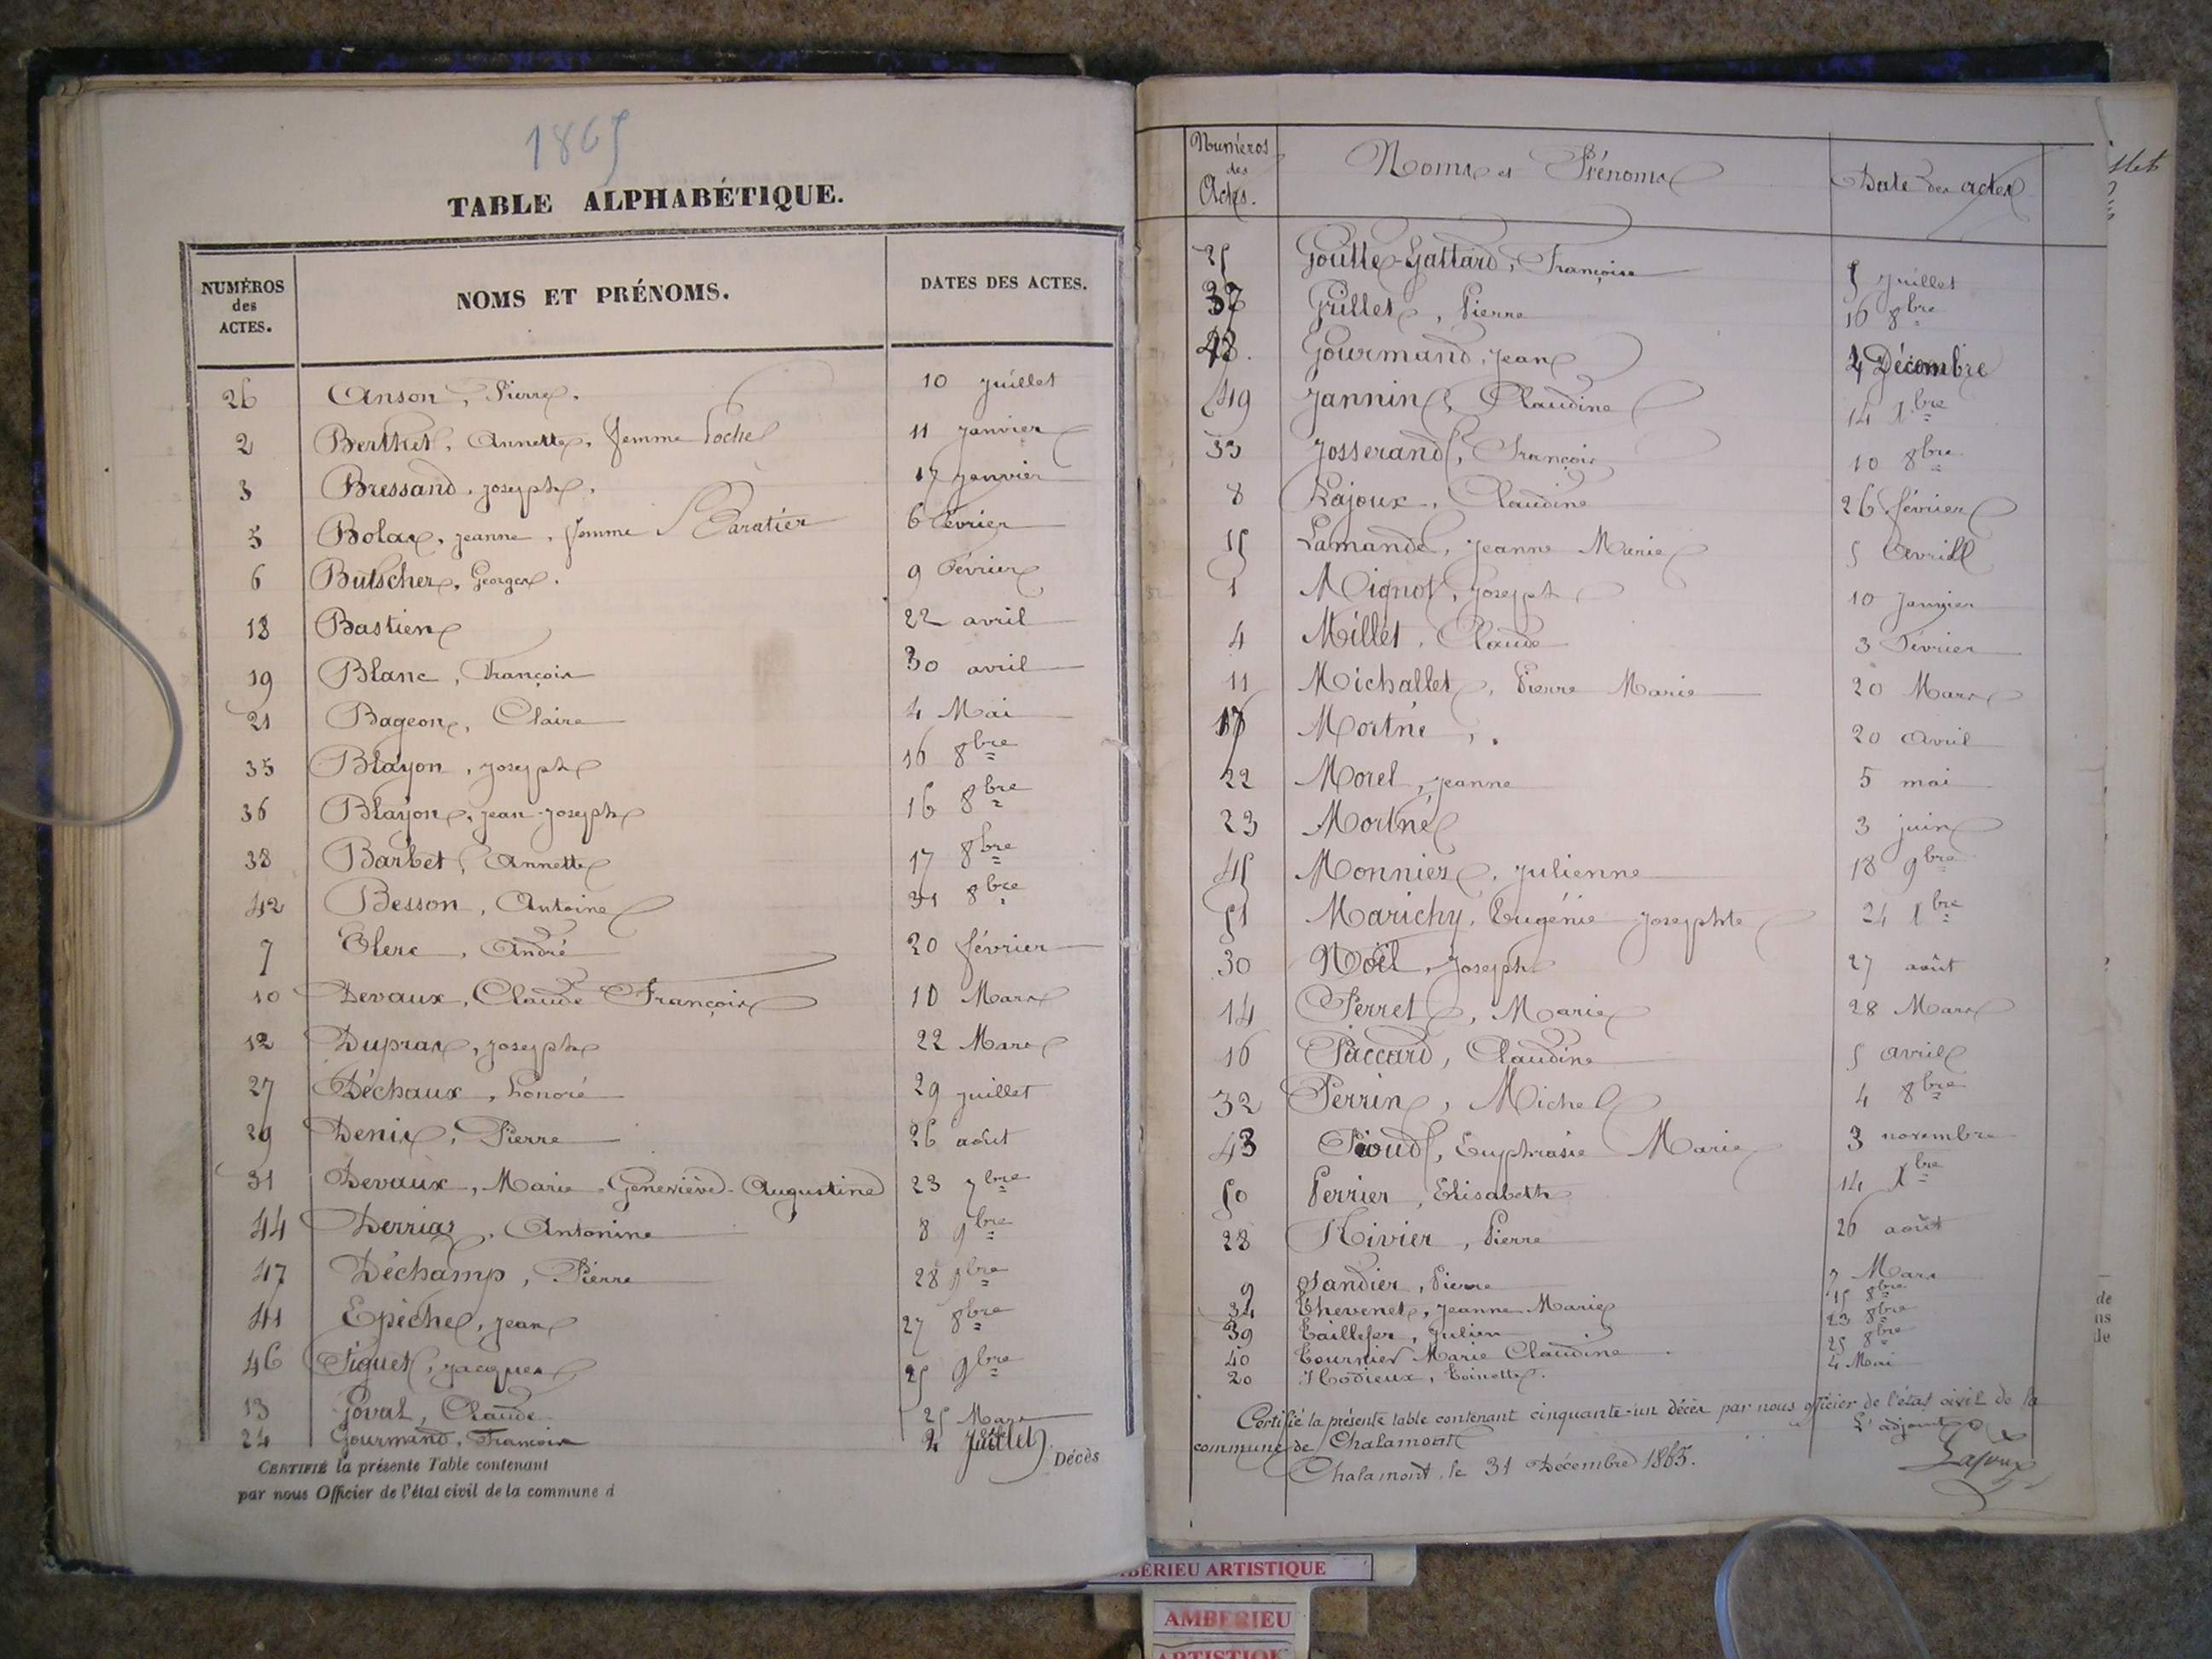 1865
TABLE ALPHABÉTIQUE.
NUMÉROS des ACTES. NOMS ET PRÉNOMS. DATES DES ACTES.
26 Anson, Pierre. 10 Juillet
2 Berthet, Annette, femme Loche 11 Janvier
3 Bressand, Joseph. 17 Janvier
5 Bolax, Jeanne, femme 6 Février
6 Butscher, Georges. 9 Février
18 Bastien 22 avril
19 Blanc, François 30 avril
21 Bageon, Claire 4 Mai
35 Blayon, Joseph 16 8bre
36 Blayon, Jean-Joseph 16 8bre
38 Barbet, Annette 17 8bre
42 Besson, Antoine 31 8bre
7 Clerc, André 20 février
10 Devaux, Claude François 10 Mars
12 Dupras, Joseph 22 Mars
27 Déchaux, honoré 29 Juillet
29 Denis, Pierre 26 août
31 Devaux, Marie-Geneviève-Augustine 23 7bre
44 Derriaz, Antonine 8 9bre
47 Déchamp, Pierre 28 9bre
41 Epiche, Jean 27 8bre
46 Figuet, Jacques 25 9bre
13 Goval, Claude 25 Mars
24 Gourmand, François 2 Juillet
CERTIFIÉ la présente Table contenant Décès
par nous Officier de l'état civil de la commune d
Numéros des Actes. Noms et Prénoms Date des actes
25 Goutte-Gattard, Françoise 5 Juillet
37 Grillet, Pierre 16 8bre
48. Gourmand, Jean 4 Décembre
49 Jannin, Claudine 14 Xbre
33 Josserand, François 10 8bre
8 Lajoux, Claudine 26 février
15 Lamande, Jeanne Marie 5 Avril
1 Mignot, Joseph 10 Janvier
4 Millet, Claude 3 Février
11 Michallet, Pierre Marie 20 Mars
17 Mortné, . 20 Avril
22 Morel, Jeanne 5 mai
23 Mortné 3 juin
45 Monnier, Julienne 18 9bre
51 Marichy, Eugénie Josephte 24 Xbre
30 Noël, Joseph 27 août
14 Perret, Marie 28 Mars
16 Paccard, Claudine 5 avril
32 Perrin, Michel 4 8bre
43 Pioud, Euphrasie Marie 3 novembre
50 Perrier, Elisabeth 14 Xbre
28 Rivier, Pierre 26 août
9 Sandier, Pierre 7 Mars
34 Thevenet, Jeanne Marie 15 8bre
39 Taillefer, Julien 23 8bre
40 Tournier Marie Claudine 25 8bre
20 Thodieux, Toinette. 4 Mai
Certifié la présente table contenant cinquante-un décès par nous officier de l'état civil de la
commune de Chalamont L'adjoint
Chalamont, le 31 Décembre 1865. Lajoux
de
ns
de
BERIEU ARTISTIQUE
AMBERIEU
ARTISTIQUE